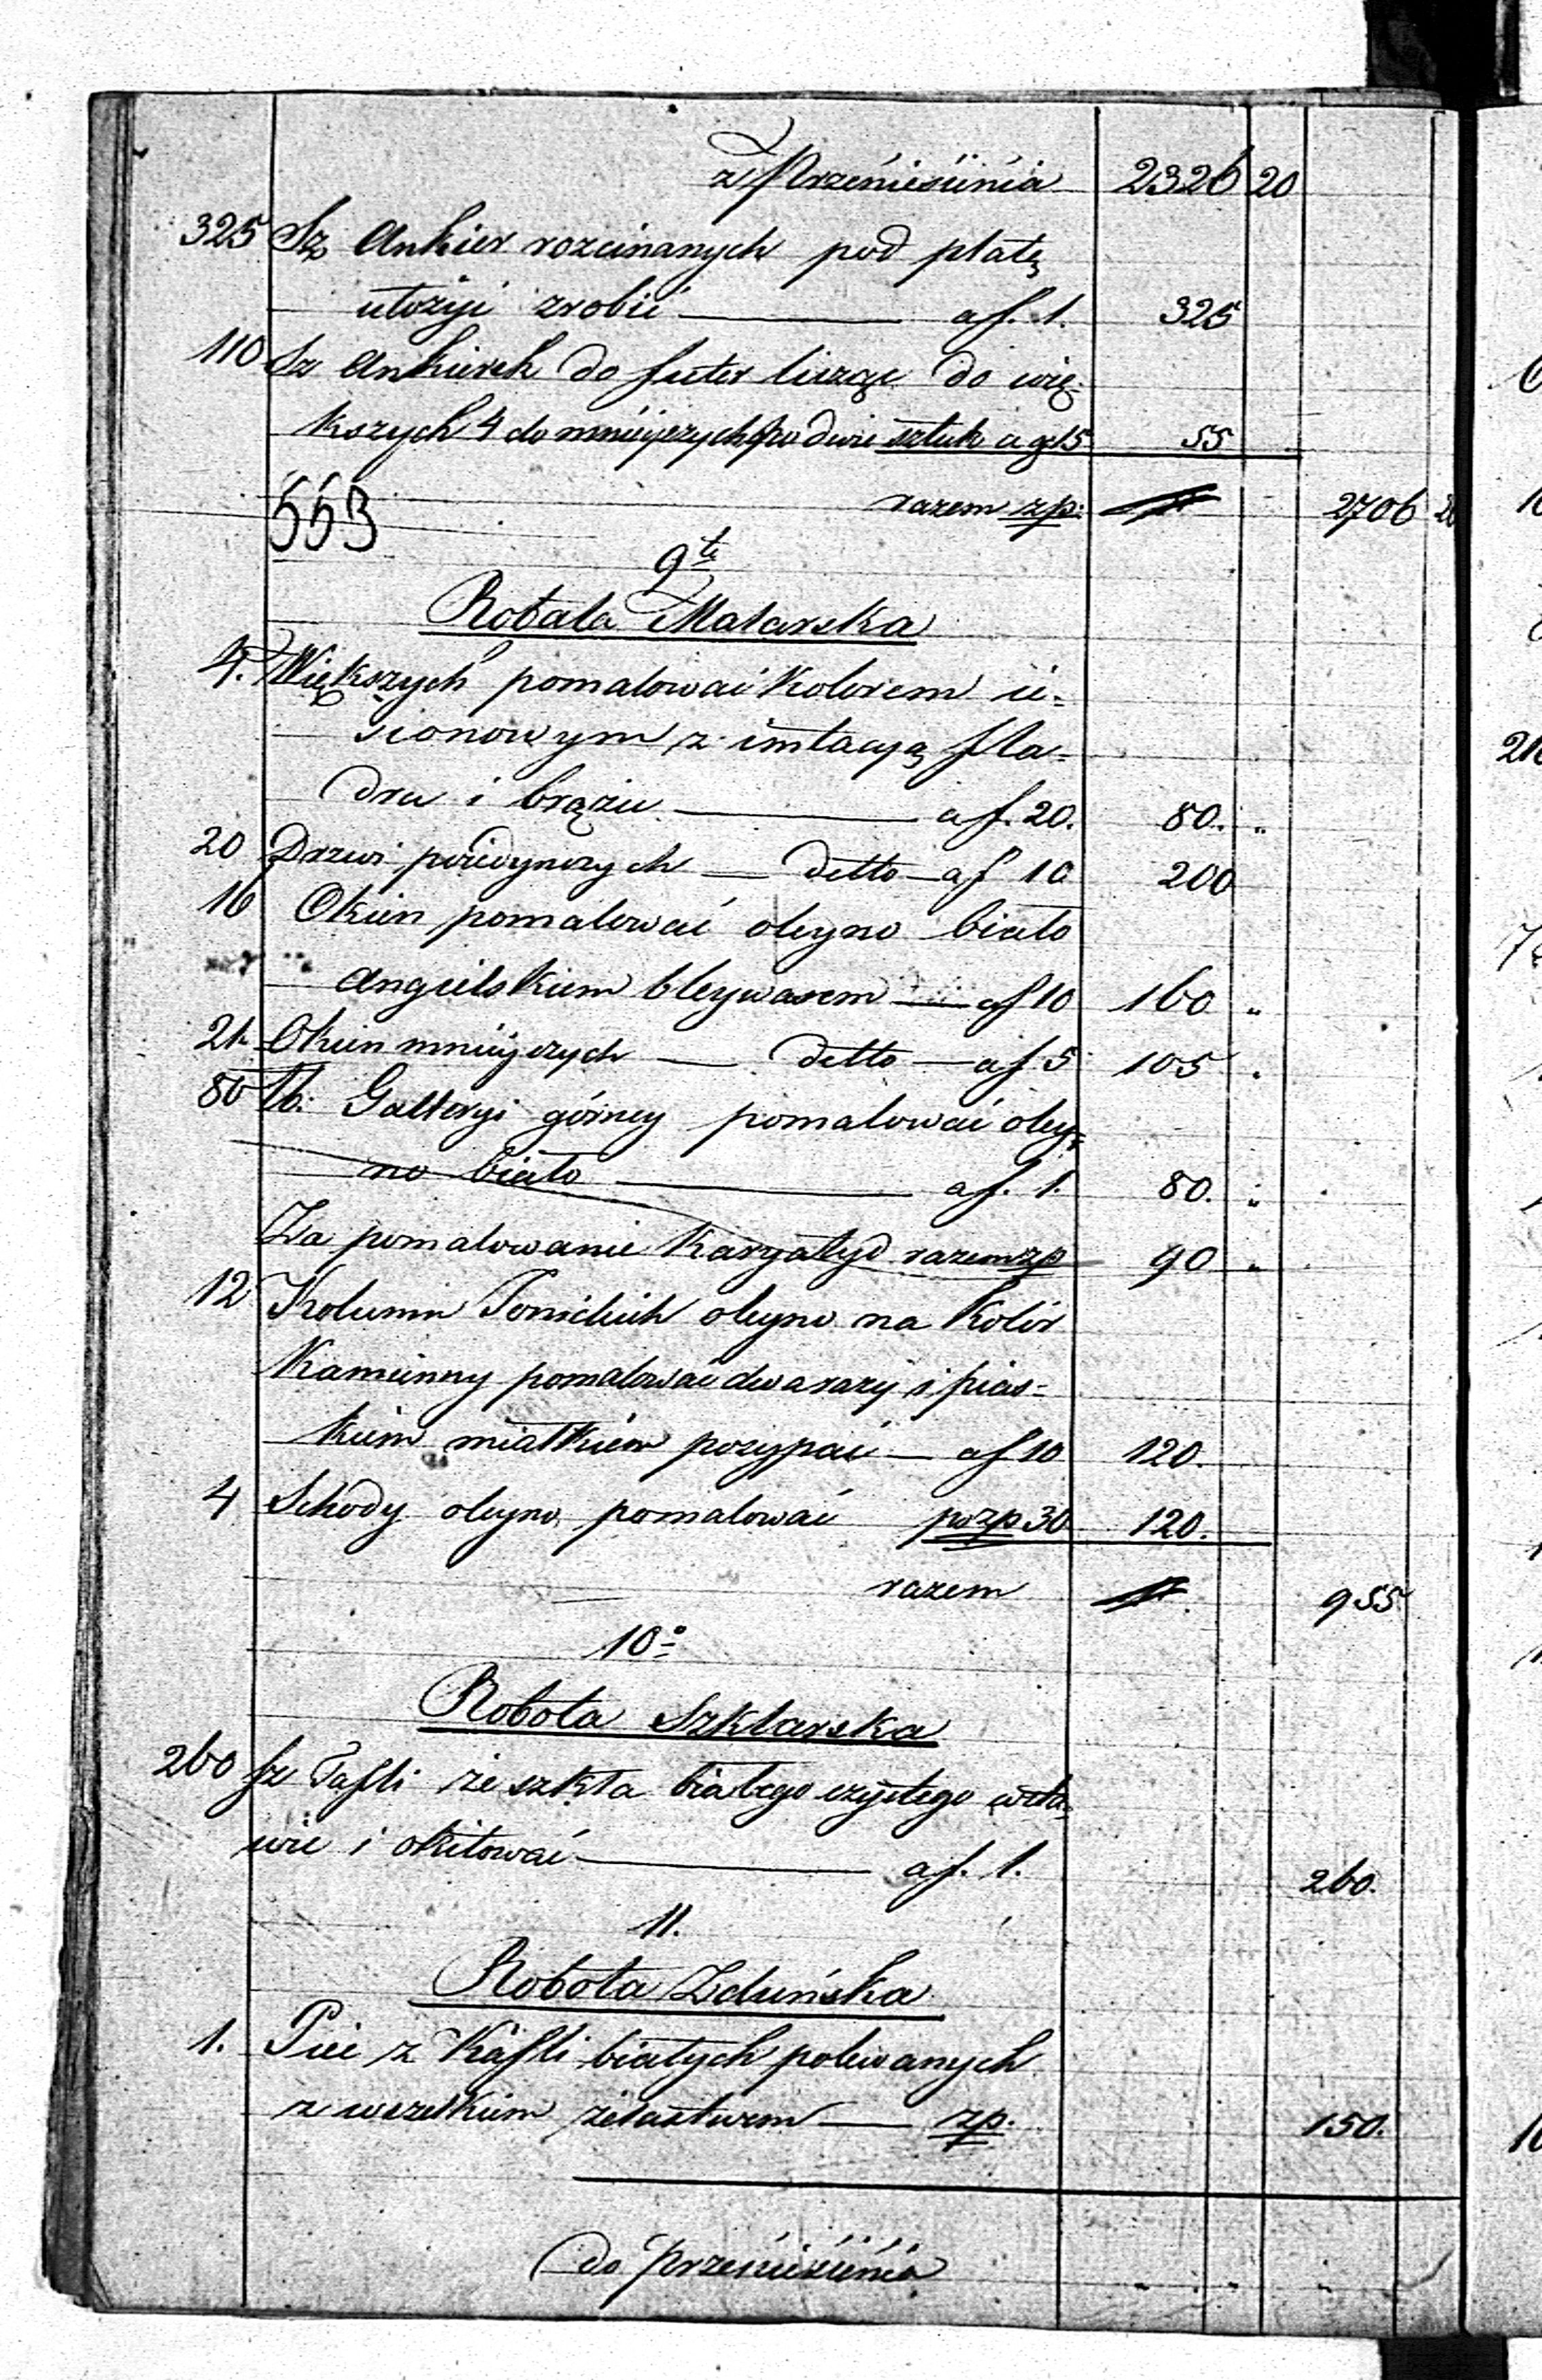 z Przeniesienia 2326 20
325 Sz Ankier rozcinanych pod płatę
ułożyć zrobić af. 1. 325
110 Sz Ankierek do futer licząc do wię-
kszych 4 do mnieyszych po dwie sztuk a gr 15 55
razem zp: 2706 20
553
9te
Robota Malarska
4. Większych pomalować kolorem ie=
sionowym z imtacyą fla=
dru i brązu af. 20. 80. "
20 Drzwi poiedynczych — detto — af 10 200
16 Okien pomalować oleyno biało
Angielskiem bleywasem — af 10 160 "
21. Okien mnieyszych — detto — af 5 105 .
80 łb: Galleryi górney pomalować oley=
no biało af. 1. 80. "
Za pomalowanie Karyatyd razem zp 90 "
12 Kolumn Jońskich oleyno na kolor
Kamienny pomalować dwa razy i pias=
kiem miałkiem posypać — af 10 120.
4 Schody oleyno pomalować po zp 30 120.
razem 955
10o
Robota Szklarska
260 sz Tafli ze szkła białego czystego wsta=
wić i okitować af. 1. 260.
11.
Robota Zduńska
1. Piec z Kafli białych polewanych
z wszelkim żelastwem — zp. 150.
do przeniesienia